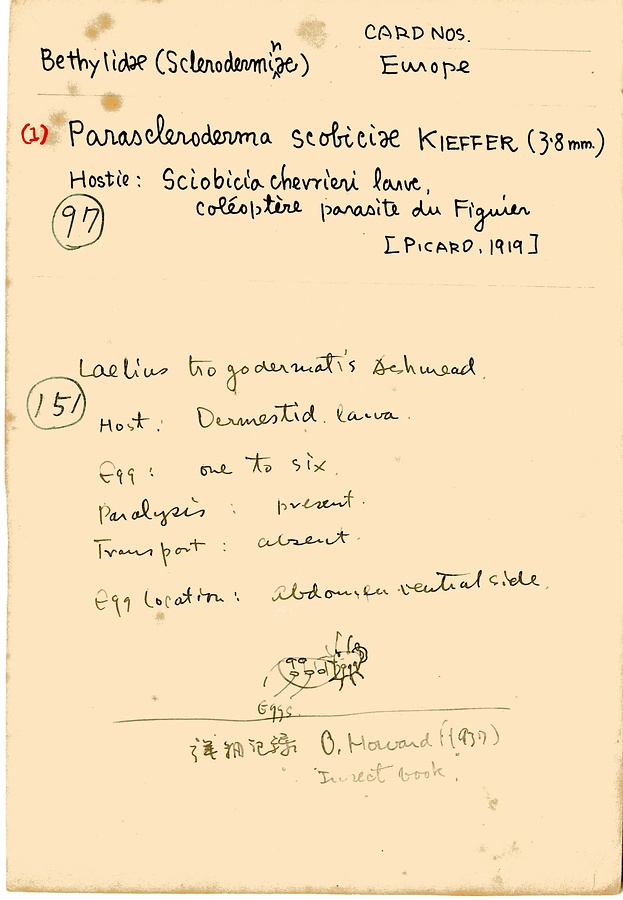 CARD NOS.
Bethylidæ (Scleroderminæ) Europe
(1) Parascleroderma scobiciæ KIEFFER (3.8 mm.)
Hostie: Sciobicia chevrieri larve,
97
coléoptère parasite du Figuier
[PICARD, 1919]
Laelius trogodermatis Ashmead.
151
Host: Dermestid. larva.
Egg: one to six.
Paralysis: present.
Transport: absent.
Egg location: Abdomen ventral side.
Eggs.
詳細記録 O. Howard (1937)
Insect book.